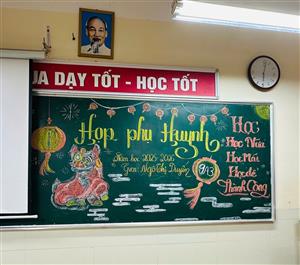 UA DẠY TỐT - HỌC TỐT
Họp phụ Huynh
Năm học 2025-2026
Gvcn: Ngô Thị Duyên
9A3
HỌC
Học Nữa
Học Mãi
Học để
Thành Công